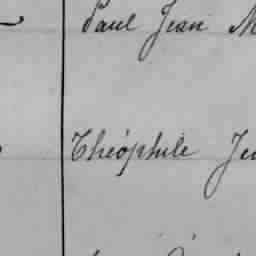 Paul Jean M
Théophile Je